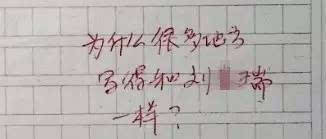 为什么很多地方
写得和刘瑞
一样?